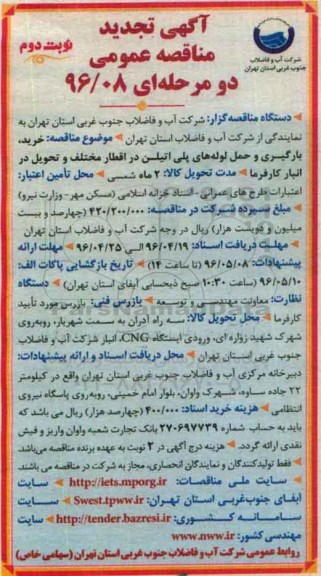 شرکت آب و فاضلاب
جنوب غربی استان تهران
آگهی تجدید
مناقصه عمومی
دو مرحله‌ای ۹۶/۰۸
نوبت دوم
دستگاه مناقصه‌گزار: شرکت آب و فاضلاب جنوب غربی استان تهران به
نمایندگی از شرکت آب و فاضلاب استان تهران موضوع مناقصه: خرید،
بارگیری و حمل لوله‌های پلی اتیلن در اقطار مختلف و تحویل در
انبار کارفرما مدت تحویل کالا: ۲ ماه شمسی محل تأمین اعتبار:
اعتبارات طرح های عمرانی - اسناد خزانه اسلامی (مسکن مهر - وزارت نیرو)
مبلغ سپرده شرکت در مناقصه: ۴۲۰/۲۰۰/۰۰۰ (چهارصد و بیست
میلیون و دویست هزار) ریال در وجه شرکت آب و فاضلاب استان تهران
مهلت دریافت اسناد: ۹۶/۰۴/۱۹ الی ۹۶/۰۴/۲۵ مهلت ارائه
پیشنهادات: ۹۶/۰۵/۰۸ (تا ساعت ۱۴) تاریخ بازگشایی پاکات الف:
۹۶/۰۵/۱۰ (ساعت ۱۰:۳۰ صبح ذیحسابی آبفای استان تهران) دستگاه
نظارت: معاونت مهندسی و توسعه بازرس فنی: بازرس مورد تأیید
کارفرما محل تحویل کالا: سه راه آدران به سمت شهریار، روبه‌روی
شهرک شهید زواره ای، ورودی ایستگاه CNG، انبار شرکت آب و فاضلاب
جنوب غربی استان تهران محل دریافت اسناد و ارائه پیشنهادات:
دبیرخانه مرکزی آب و فاضلاب جنوب غربی استان تهران واقع در کیلومتر
۲۲ جاده ساوه، شهرک واوان، بلوار امام خمینی، روبه روی پاسگاه نیروی
انتظامی هزینه خرید اسناد: ۴۰۰/۰۰۰ (چهارصد هزار) ریال می باشد که
باید به حساب شماره ۲۷۰۶۹۷۷۳۹ بانک تجارت شعبه واوان واریز و فیش
نقدی ارائه گردد. هزینه درج آگهی در ۲ نوبت به عهده برنده مناقصه می‌باشد.
فقط تولیدکنندگان و نمایندگان انحصاری، مجاز به شرکت در مناقصه می باشند.
سایت ملی مناقصات: http://iets.mporg.ir سایت
آبفای جنوب‌غربی استان تهران: Swest.tpww.ir سایت
سامانه کشوری: http://tender.bazresi.ir سایت
مهندسی کشور: www.nww.ir
روابط عمومی شرکت آب و فاضلاب جنوب غربی استان تهران (سهامی خاص)